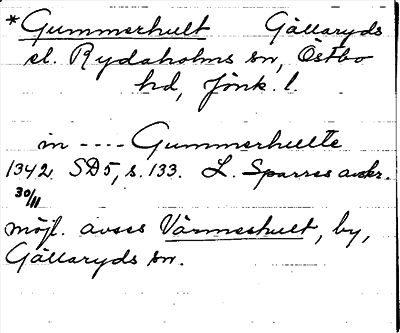 *Gummerhult Gällaryds
el. Rydaholms sn, Östbo
hd, Jönk. l.
in ---- Gummerhulte
1342 SD5, s. 133. L. Sparres avskr.
30/11
möjl. avses Värmeshult, by,
Gällaryds sn.